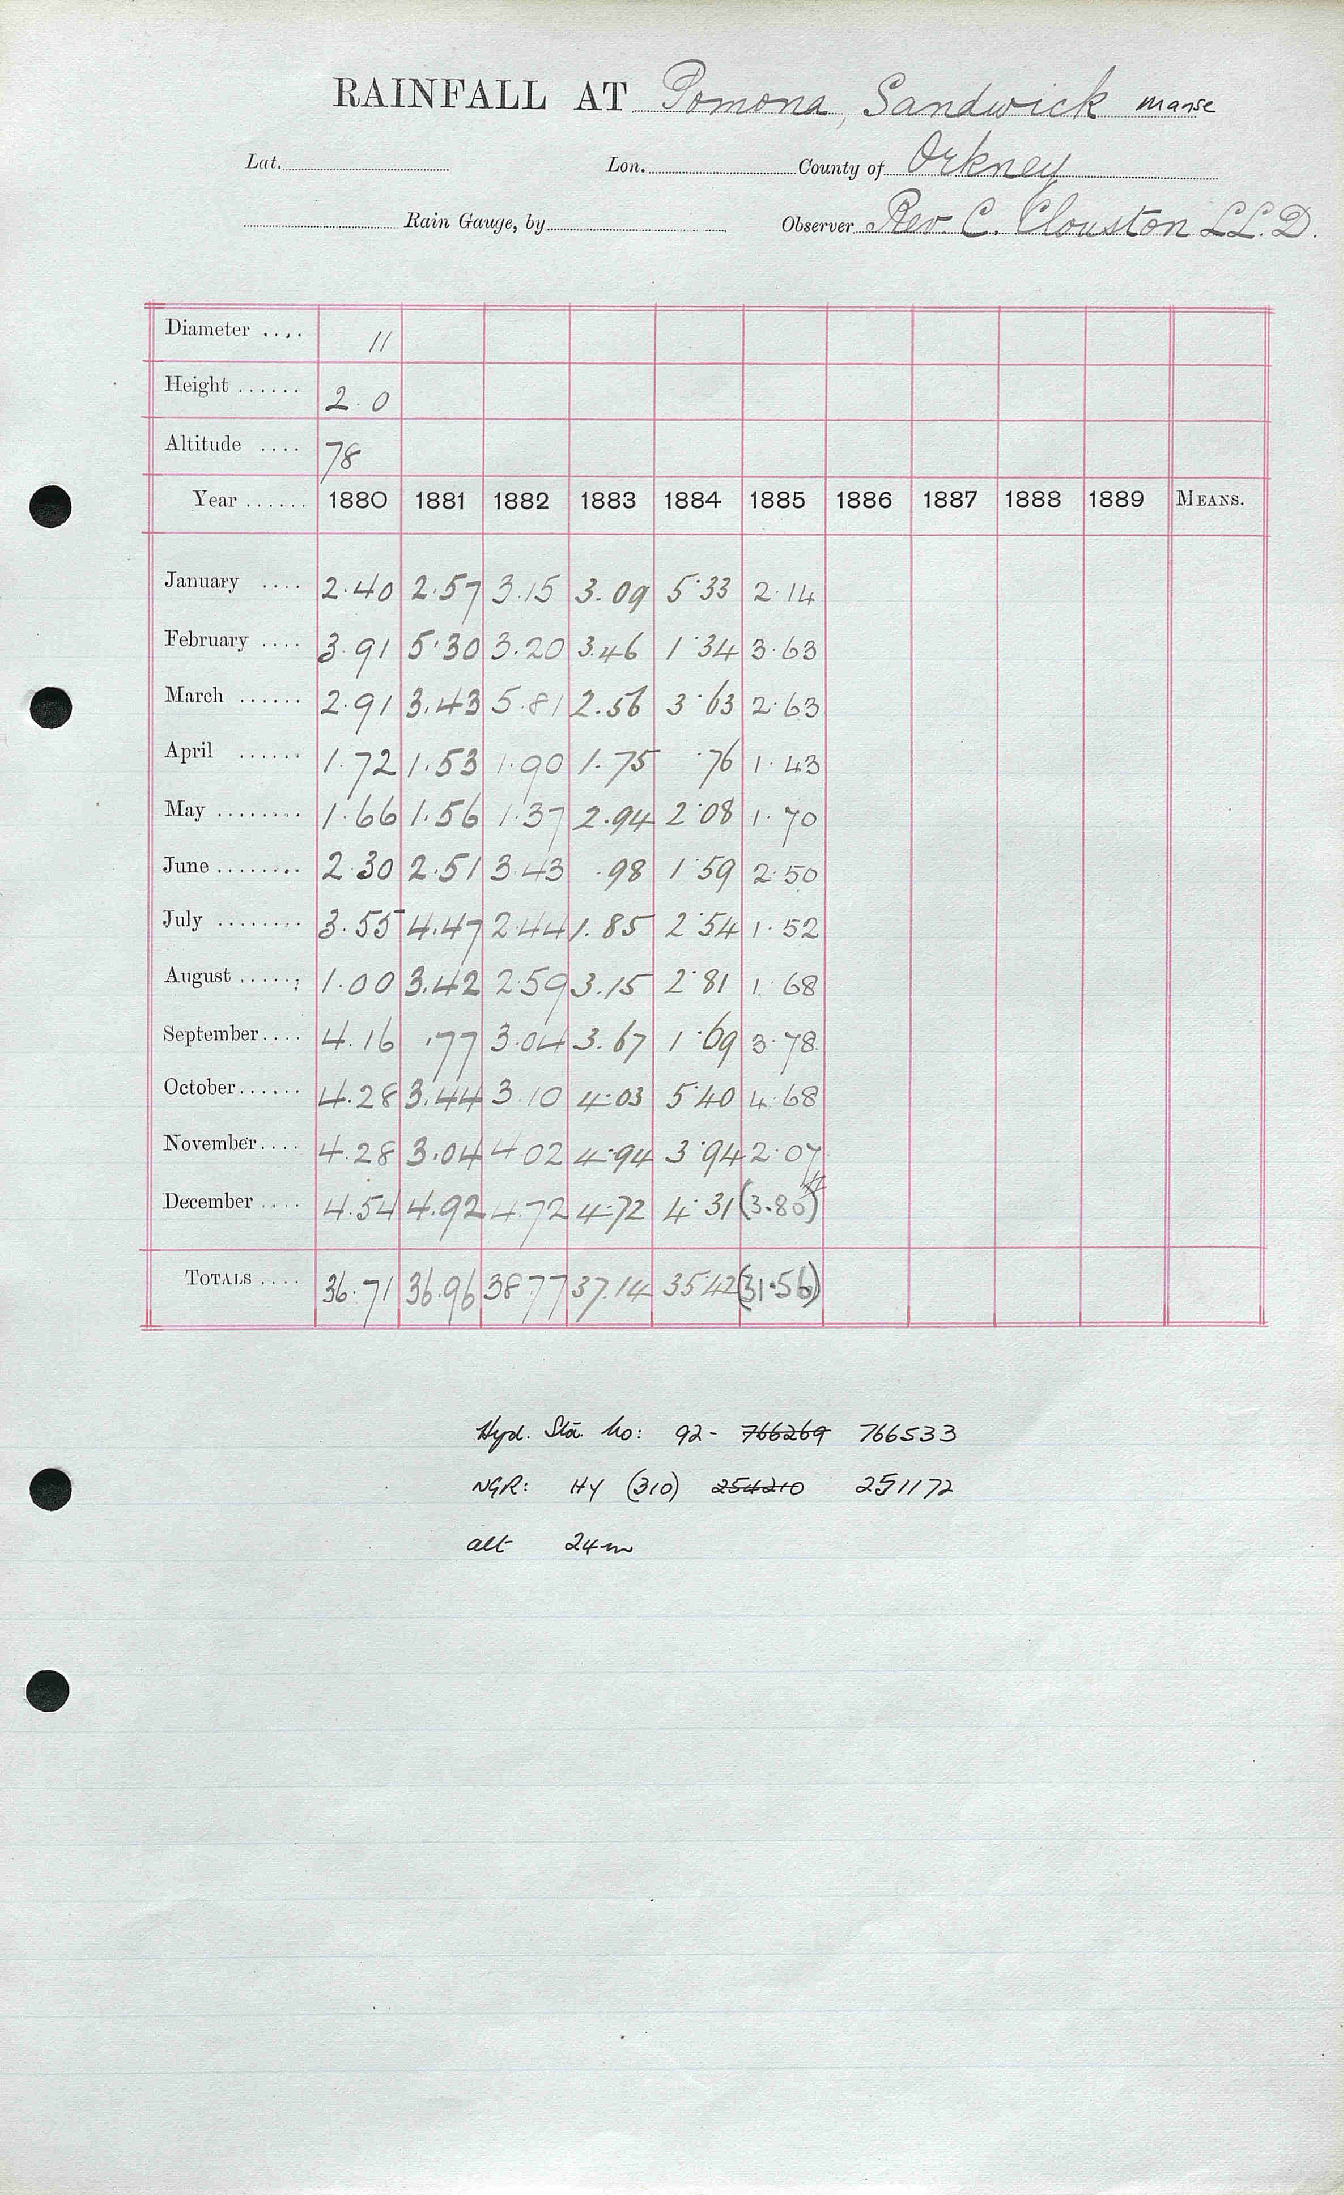 RAINFALL AT Pomona, Sandwick manse
Lat. Lon. County of Orkney
Rain Gauge, by Observer Rev. C. Clouston LL.D.
Diameter .... 11
Height ...... 2 0
Altitude .... 78
Year ...... 1880 1881 1882 1883 1884 1885 1886 1887 1888 1889 MEANS.
January .... 2.40 2.57 3.15 3.09 5.33 2.14
February .... 3.91 5.30 3.20 3.46 1.34 3.63
March ...... 2.91 3.43 5.81 2.56 3.63 2.63
April ...... 1.72 1.53 1.90 1.75 .76 1.43
May ........ 1.66 1.56 1.37 2.94 2.08 1.70
June ........ 2.30 2.51 3.43 .98 1.59 2.50
July ........ 3.55 4.47 2.44 1.85 2.54 1.52
August ..... 1.00 3.42 2.59 3.15 2.81 1.68
September .... 4.16 .77 3.04 3.67 1.69 3.78
October ...... 4.28 3.44 3.10 4.03 5.40 4.68
November .... 4.28 3.04 4.02 4.94 3.94 2.07
December .... 4.54 4.92 4.72 4.72 4.31 (3.80)
TOTALS .... 36.71 36.96 38.77 37.14 35.42 (31.56)
Hyd. Sta. No: 92- 766269 766533
NGR: HY (310) 254210 251172
alt 24m